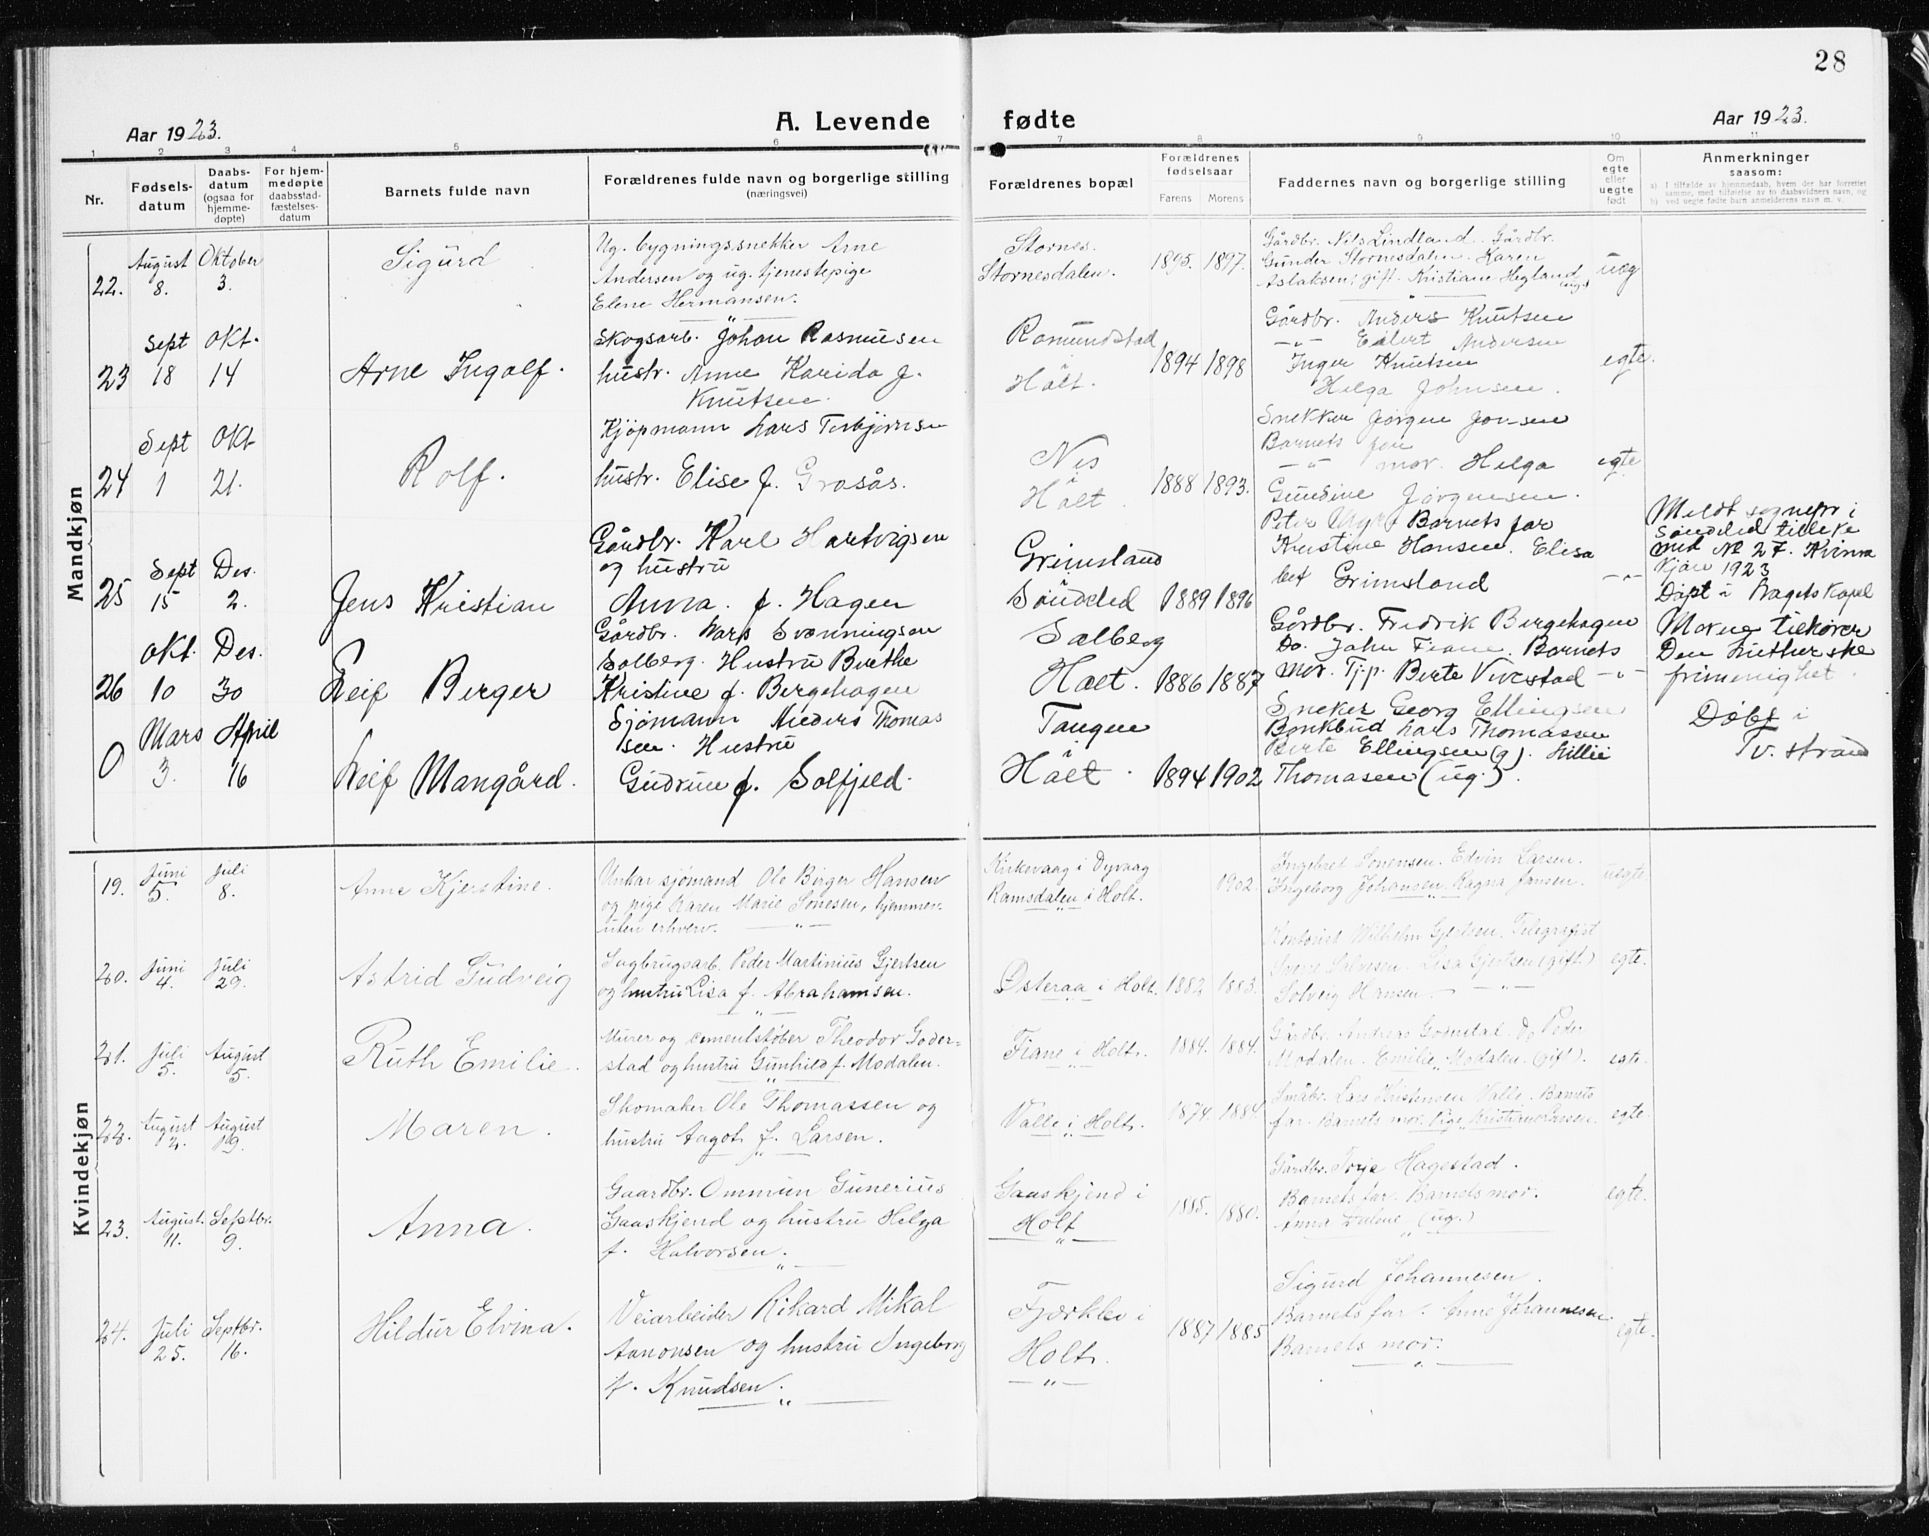 28
Aar 1923.
A. Levende fødte
Aar 1923.
1 2 3 4 5 6 7 8 9 10 11
Nr.
Fødsels-
datum
Daabs-
datum
(ogsaa for
hjemme-
døpte)
For hjem-
medøpte
daabsstad-
fæstelses-
datum
Barnets fulde navn
Forældrenes fulde navn og borgerlige stilling
(næringsvei)
Forældrenes bopæl
Forældrenes
fødselsaar
Farens Morens
Faddernes navn og borgerlige stilling
Om
egte
eller
uegte
født
Anmerkninger
saasom:
a) I tilfælde av hjemmedaab, hvem der har forrettet
samme, med tilføielse av to daabsvidners navn, og
b) ved uegte fødte barn anmelderens navn m. v.
Mandkjøn
22.
August
8.
Oktober
3.
Sigurd
Ug. bygningssnekker Arne
Andersen og ug. tjenestepige
Elene Hermansen.
Stornes.
Stornesdalen.
1895. 1897.
Gårdbr. Nils Lindland. Gårdbr.
Gunder Stornesdalen. Karen
Aslaksen, gift. Kristiane Hegland
ueg
23
Sept
18
Okt.
14
Arne Ingolf.
Skogsarb. Johan Rasmusen
hustr. Anne Karida f.
Knutsen.
Romundstad
i
Holt.
1894 1898
Gårdbr. Anders Knutsen
—"— Eilert Andersen
Inger Knutsen
Helga Johnsen.
egte.
24
Sept
1
Okt
21.
Rolf.
Kjøpmann Lars Torbjørnsen
hustr. Elise f. Grosås.
Nes
Holt
1888 1893.
Snekker Jørgen Jonsen
Barnets far
—"— mor. Helga
Gundine Jørgensen.
egte
25
Sept
15
Des.
2.
Jens Kristian
Gårdbr. Karl Hartvigsen
og hustru
Anna. f. Hagen
Grimsland
Søndeled
1889 1896
Peter Barnets far
Kristine Hansen. Elisa
bet Grimsland
—"—
Meldt sognepr i
Søndeled tilleke
med No 27. Kvinne
kjøn 1923
Døpt i Hagets kapel
26
Okt.
10
Des.
30
Leif Birger
Gårdbr. Lars Svenningsen
Solberg. Hustru Birthe
Kristine f. Bergehagen
Solberg
Holt.
1886 1887
Gårdbr. Fredrik Bergehagen
Do. John Fiane. Barnets
mor. Tj.p. Berte Vivestad
—"—
Morne tilhører
Den Lutherske
frimenighet.
0
Mars
3.
April
16
Leif Mangård.
Sjømann Anders Thomas
sen. Hustru
Gudrun f. Solfjeld.
Tangen
i
Holt.
1894 1902
Sneker Georg Ellingsen
Bankbud Lars Thomassen
Berte Ellingsen (g). Lillie
Thomasen (ug.).
Døbt i
Tv. strand
Kvindekjøn
19.
Juni
5.
Juli
8.
Anne Kjerstine.
Unkar sjømand Ole Birger Hansen
og pige Karen Marie Sønesen, hjemmev.
uten erhverv. —"—
Kirkevaag i Dyvaag
Ramsdalen i Holt.
1902.
Ingebret Sønensen. Edvin Larsen.
Ingeborg Johansen. Ragna Jansen.
uegte.
20.
Juni
4.
Juli
29.
Astrid Gudveig
Sagbrugsarb. Peder Martinius Gjertsen
og hustru Lisa f. Abrahamsen.
Østeraa i Holt.
1882 1883.
Kontorist Wilhelm Gjertsen. Telegrafist
Sverre Salvesen. Lisa Gjertsen (gift.)
Solveig Hansen —"—
egte.
21.
Juli
5.
August
5.
Ruth Emilie.
Murer og cementstøber Theodor Goder-
stad og hustru Gunhild f. Modalen.
Fiane i Holt.
1884. 1884.
Gårdbr. Andreas Do Peder
Modalen. Emilie Modalen (gift).
egte.
22.
August
12.
August
19.
Maren.
Skomaker Ole Thomassen og
hustru Aagot f. Larsen.
Valle i Holt.
1874. 1884.
Småbr. Lars Kristensen Valle. Barnets
far. Barnets mor. Pige
egte.
23.
August.
11.
Septbr.
9.
Anna.
Gaardbr. Ommun Gunerius
Gaaskjend og hustru Helga
f. Halvorsen.
Gaaskjend i
Holt
1885. 1880.
Gårdbr. Terje Hagestad.
Barnets far. Barnets mor.
Anna (ug.)
egte.
24.
Juli
25.
Septbr.
16.
Hildur Elvina.
Veiarbeider Rikard Mikal
Aanonsen og hustru Ingeborg
f. Knudsen.
Fjærkleiv i
Holt.
—"—
1887 1885
Sigurd Johannesen.
Barnets far. Anne Johannesen
Barnets mor.
—"—
egte.